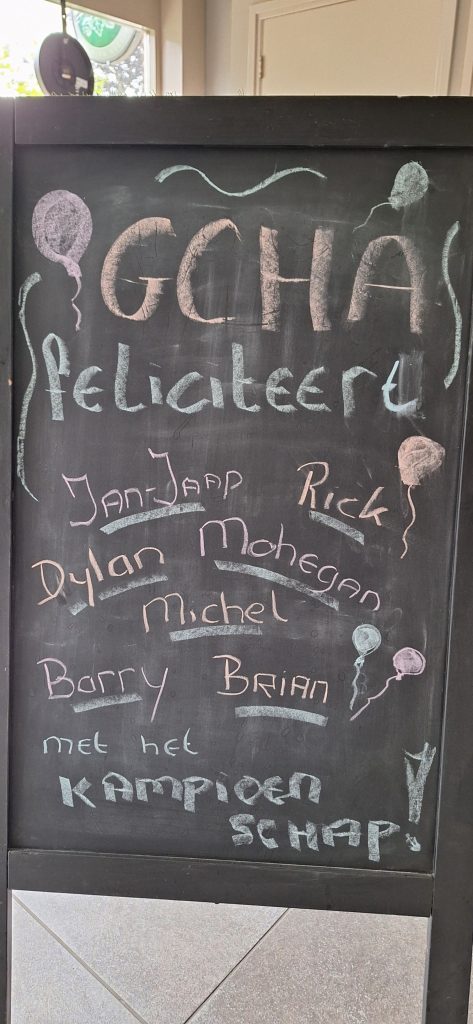 GCHA
feliciteert
Jan-Jaap Rick
Dylan Mohegan
Michel
Barry Brian
met het
KAMPIOEN
SCHAP!